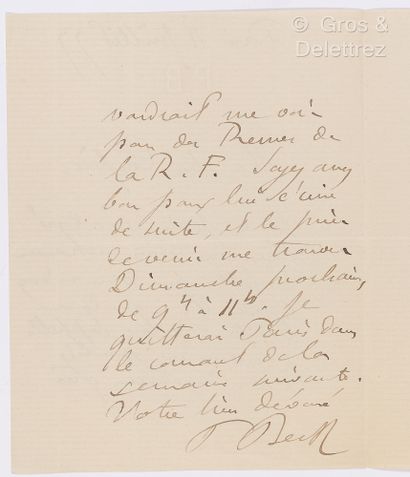 © Gros &
Delettrez
voudrait me voir
pour des
la R. F. Soyez assez
bon pour lui écrire
de suite, et le prier
de venir me trouver
Dimanche prochain,
de 9h à 11h. Je
quitterai Paris dans
le courant de la
semaine suivante.
Votre bien dévoué